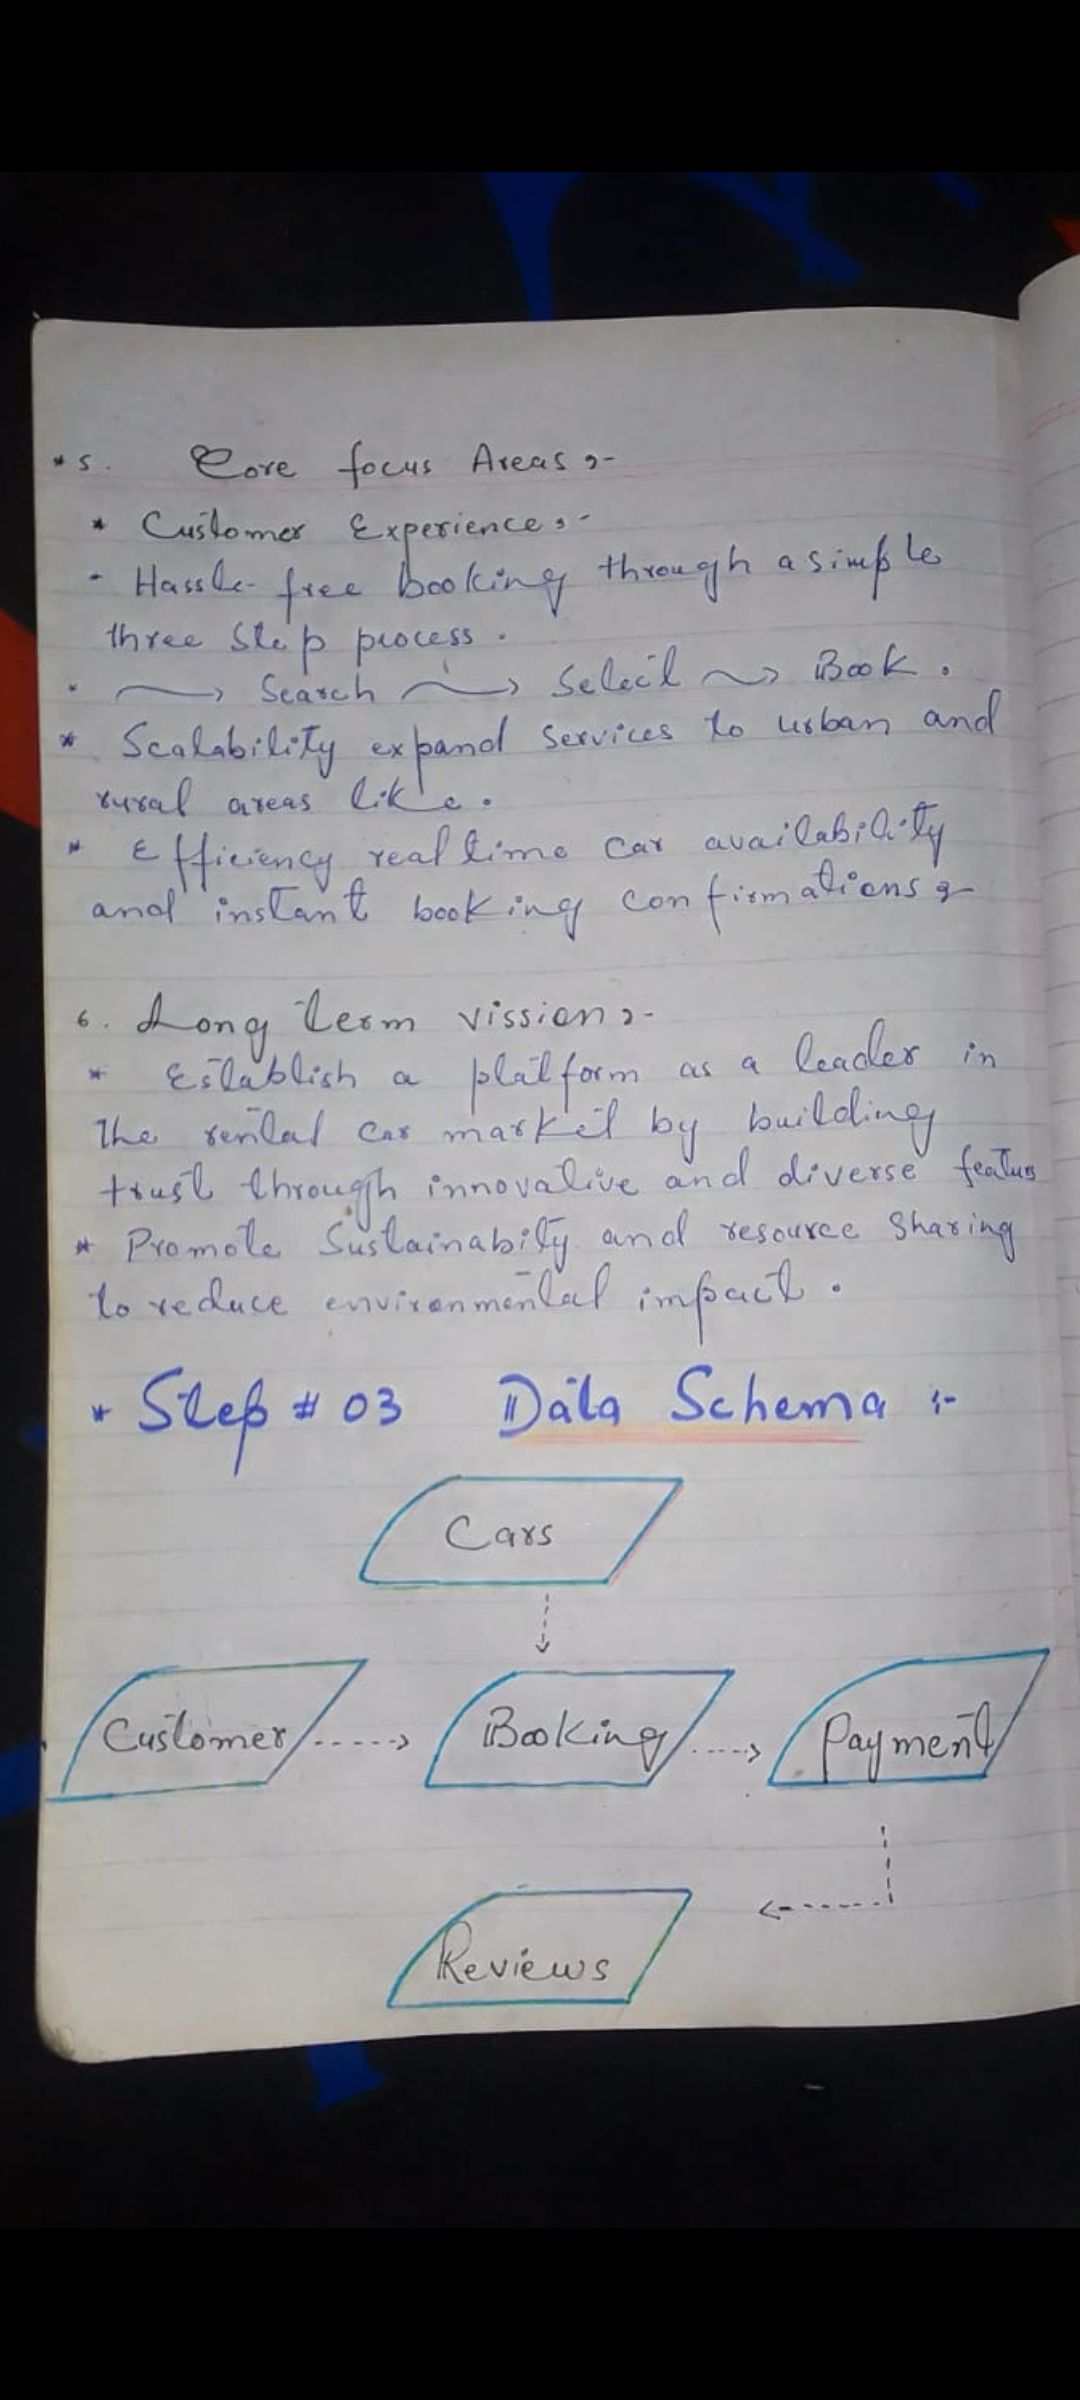 * 5. Core focus Areas :-
* Customer Experience :-
- Hassle-free booking through a simple
three step process.
. → Search → Select → Book.
* Scalability expand services to urban and
rural areas like.
* Efficiency real time car availability
and instant booking confirmations :-
6. Long term vission :-
* Establish a platform as a leader in
the rental car market by building
trust through innovative and diverse featues
* Promote Sustainabity and resource sharing
to reduce environmental impact.
* Step # 03 Data Schema :-
Cars
Customer Booking Payment
Reviews